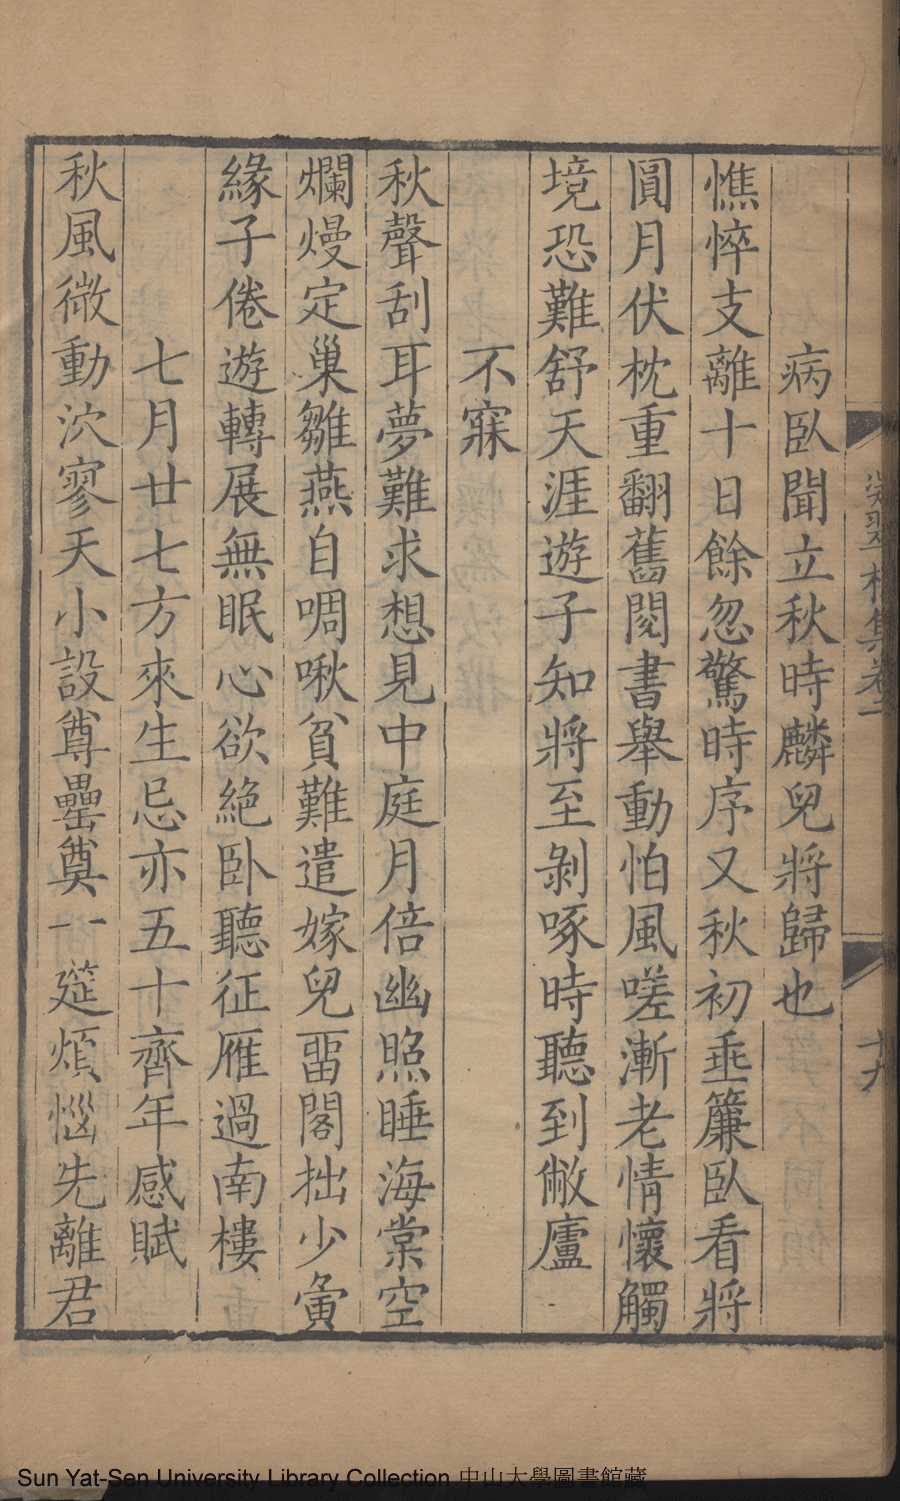 病臥聞立秋時麟兒將歸也
憔悴支離十日餘忽驚時序又秋初垂簾臥看將
圓月伏枕重翻舊閱書舉動怕風嗟漸老情懷觸
境恐難舒天涯遊子知將至剝啄時聽到敝廬
不寐
秋聲刮耳夢難求想見中庭月倍幽照睡海棠空
爛熳定巢雛燕自啁啾貧難遣嫁兒畱閣拙少夤
緣子倦遊轉展無眠心欲絶卧聽征雁過南樓
七月廿七方來生忌亦五十齊年感賦
秋風微動泬寥天小設尊罍奠一筵煩惱先離君
翠 集卷二
十九
Sun Yat-Sen University Library Collection 中山大學圖書館藏